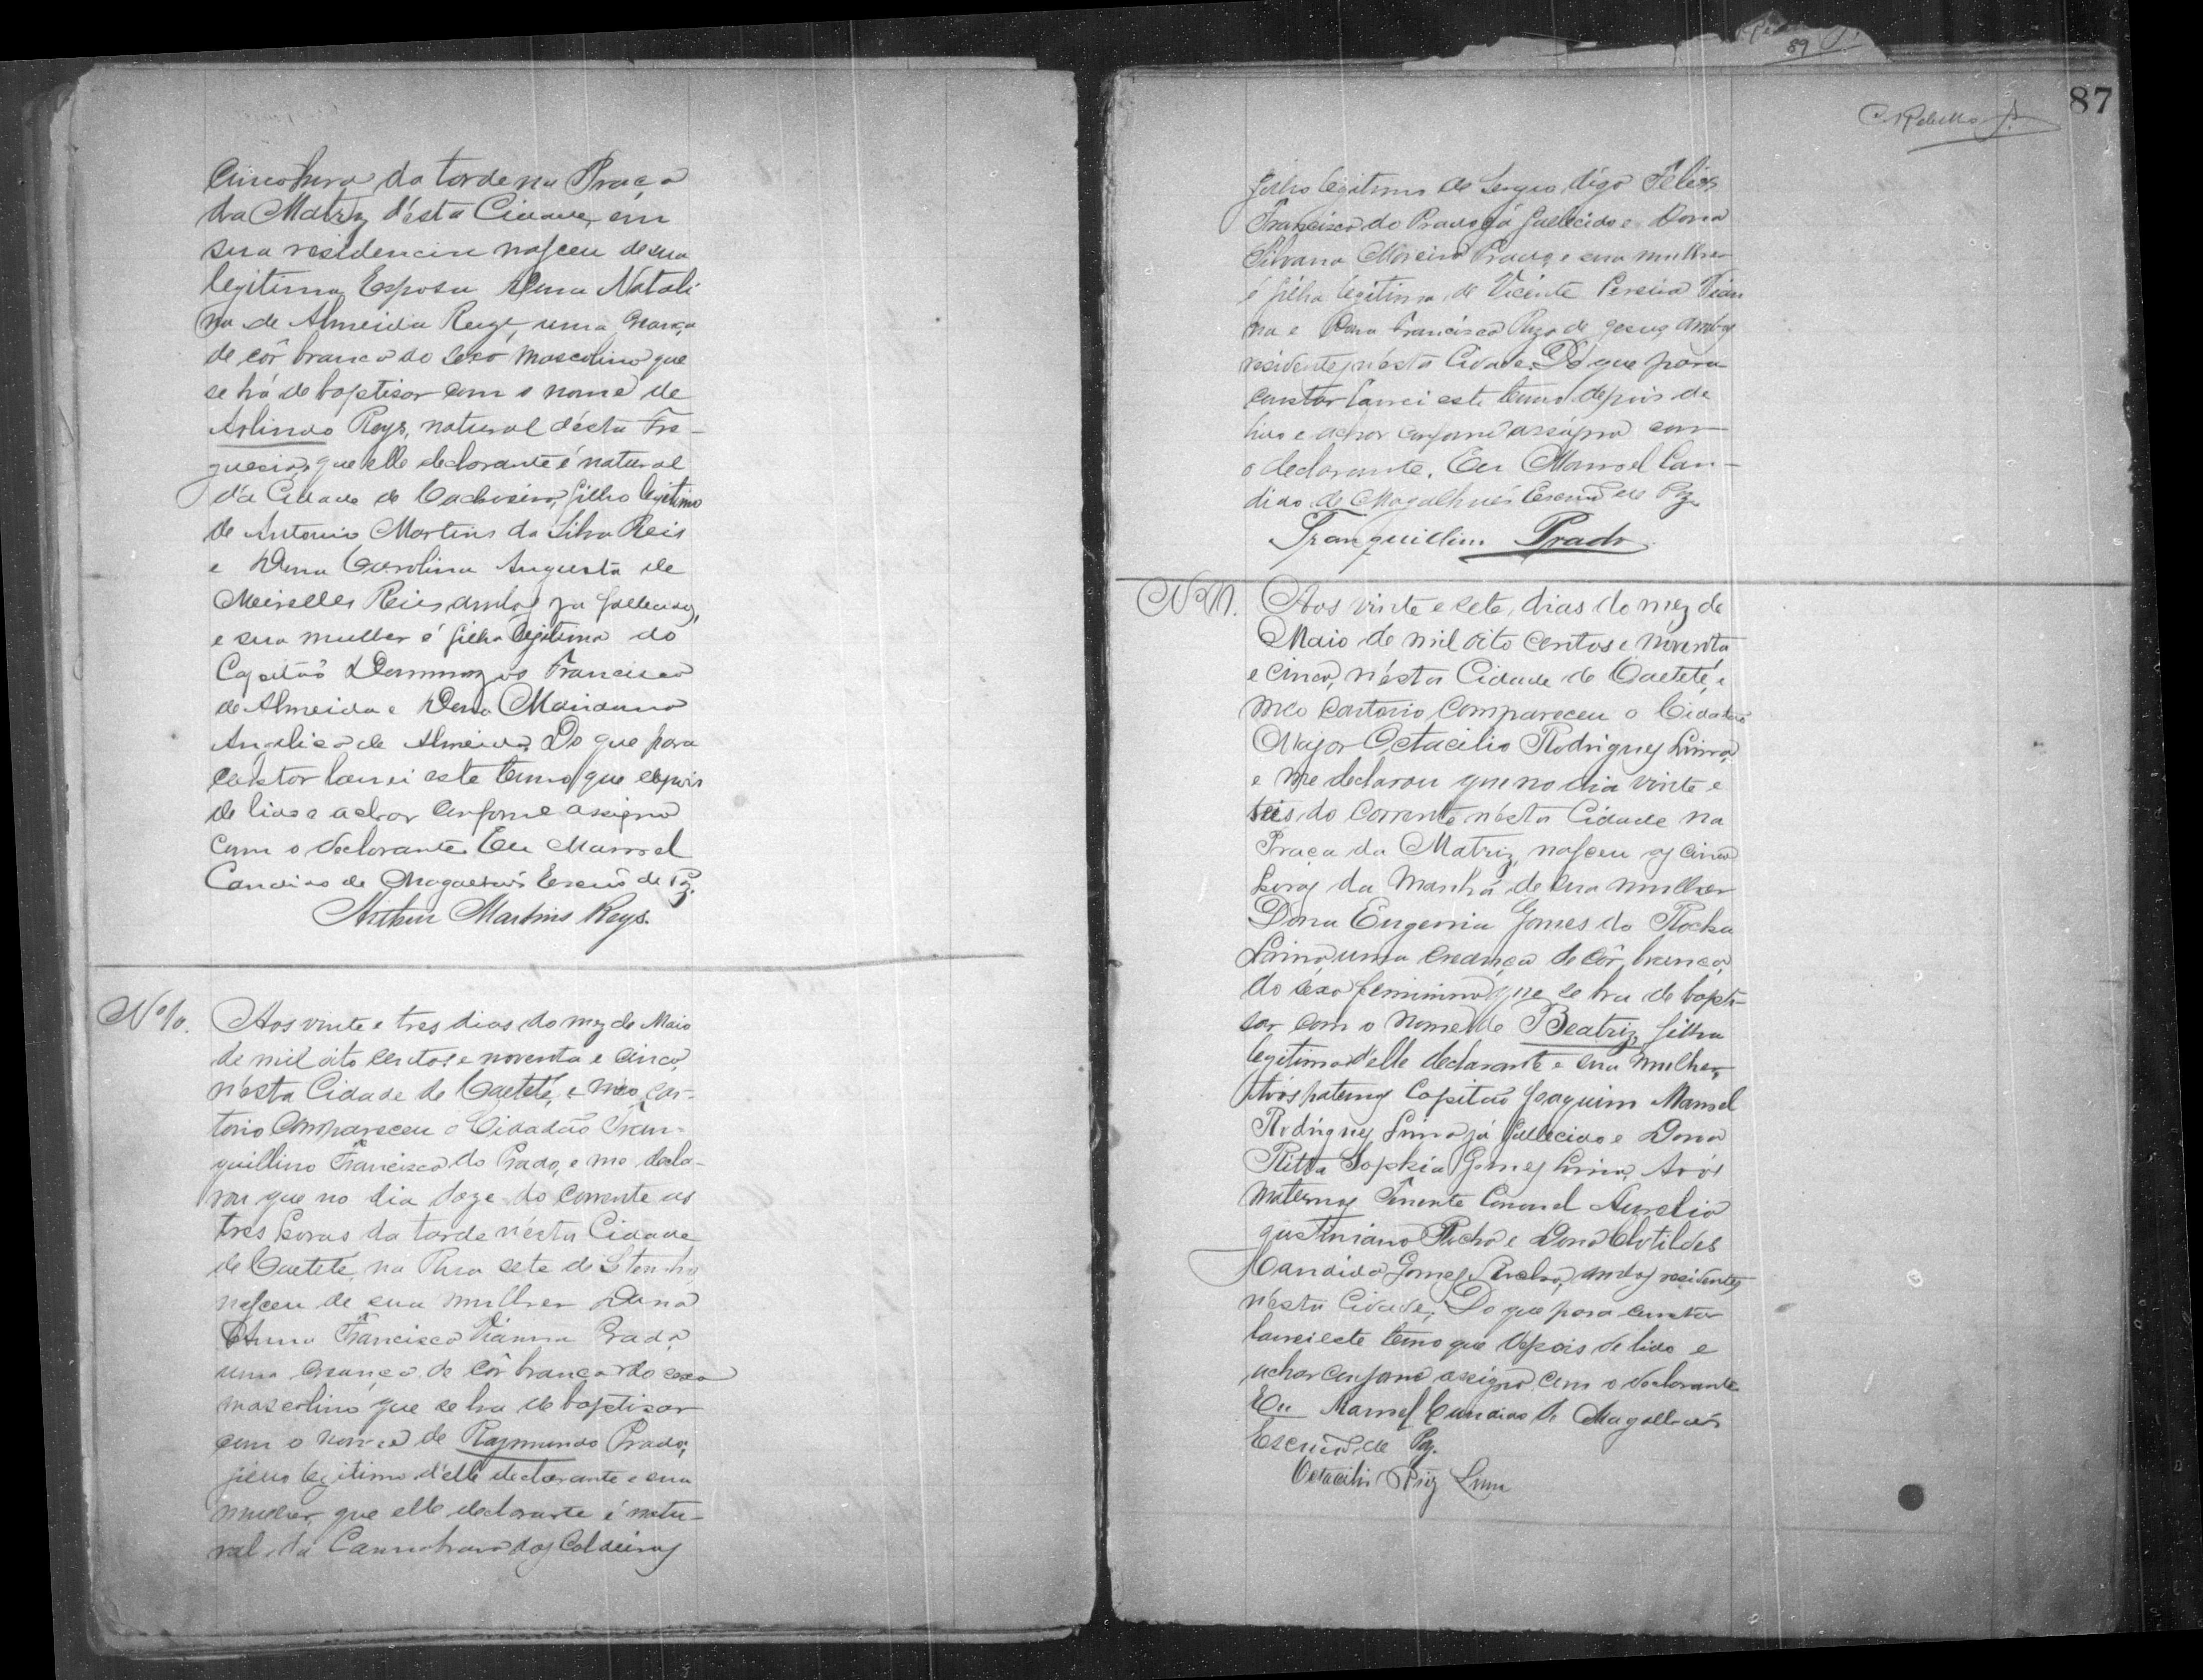 cinco hora da tarde na Praça
da Matriz d'ésta Cidade, em
sua residencia nasceu de sua
legitima Esposa Dona Natali
na de Almeida Reys, uma creança
de côr branca do sexo masculino que
se há de baptisar com o nome de
Arlindo Reys, natural d'ésta Fre-
guesia, que elle declarante é natural
da Cidade de Cachoeira, filho legitimo
de Antonio Martins da Silva Reis
e Dona Carolina Augusta de
Meirelles Reis ambos ja fallecidos,
e sua mulher é filha legitima do
Capitão Domingos Francisco
de Almeida e Dona Marianna
Angelica de Almeida. Do que para
constar lavrei este termo que depois
de lido e achar conforme assigno
com o declarante. Eu Manoel
Candido de Magalhães Escrivão de Paz.
Arthur Martins Reys.
Nº 10.
Aos vinte e tres dias do mez de Maio
de mil oito centos e noventa e cinco,
n'ésta Cidade de Caeteté, e meo car-
torio compareceu o Cidadão Tran-
quillino Francisco do Prado, e me decla-
rou que no dia doze do corrente as
tres horas da tarde n'ésta Cidade
de Caeteté, na Rua sete de Setembro
nasceu de sua mulher Dona
Anna Francisca Vianna Prado,
uma creança de côr branca do sexo
masculino que se ha de baptisar
com o nome de Raymundo Prado,
filho legitimo d'elle declarante e sua
mulher, que elle declarante é natu-
ral da Cannabrava dos Caldeiras
89
87
filho legitimo de Sergio, digo Felix
Francisco do Prado já fallecido e Dona
Silvana Moreira Prado, e sua mulher
é filha legitima de Vicente Pereira Vian
na e Dona Francisca de Jesus, ambos
residentes n'ésta Cidade. Do que para
constar lavrei este termo depois de
lido e achar conforme assigno com
o declarante. Eu Manoel Can-
dido de Magalhães Escrivão de Paz
Tranquillino Prado
Nº 11.
Aos vinte e sete dias do mez de
Maio de mil oito centos e noventa
e cinco, n'ésta Cidade de Caeteté, e
meo cartorio compareceu o Cidadão
Major Octacilio Rodrigues Lima,
e me declarou que no dia vinte e
seis do corrente n'ésta Cidade na
Praça da Matriz, nasceu as cinco
horas da manhã de sua mulher
Dona Eugenia Gomes da Rocha
Lima, uma creança de côr branca,
do sexo feminino que se ha de bapti-
sar com o nome de Beatriz, filha
legitima d'elle declarante e sua mulher,
Avós paternos Capitão Joaquim Manoel
Rodrigues Lima já fallecido e Dona
Ritta Sophia Gomes Lima, Avós
maternos Tenente Coronel Aurelio
Justiniano Rocha e Dona Clotildes
Candida Gomes Rocha, ambos residentes
n'ésta Cidade. Do que para constar
lavrei este termo que depois de lido e
achar conforme assigno com o declarante.
Eu Manoel Candido de Magalhães
Escrivão de Paz.
Octacilio Roiz Lima